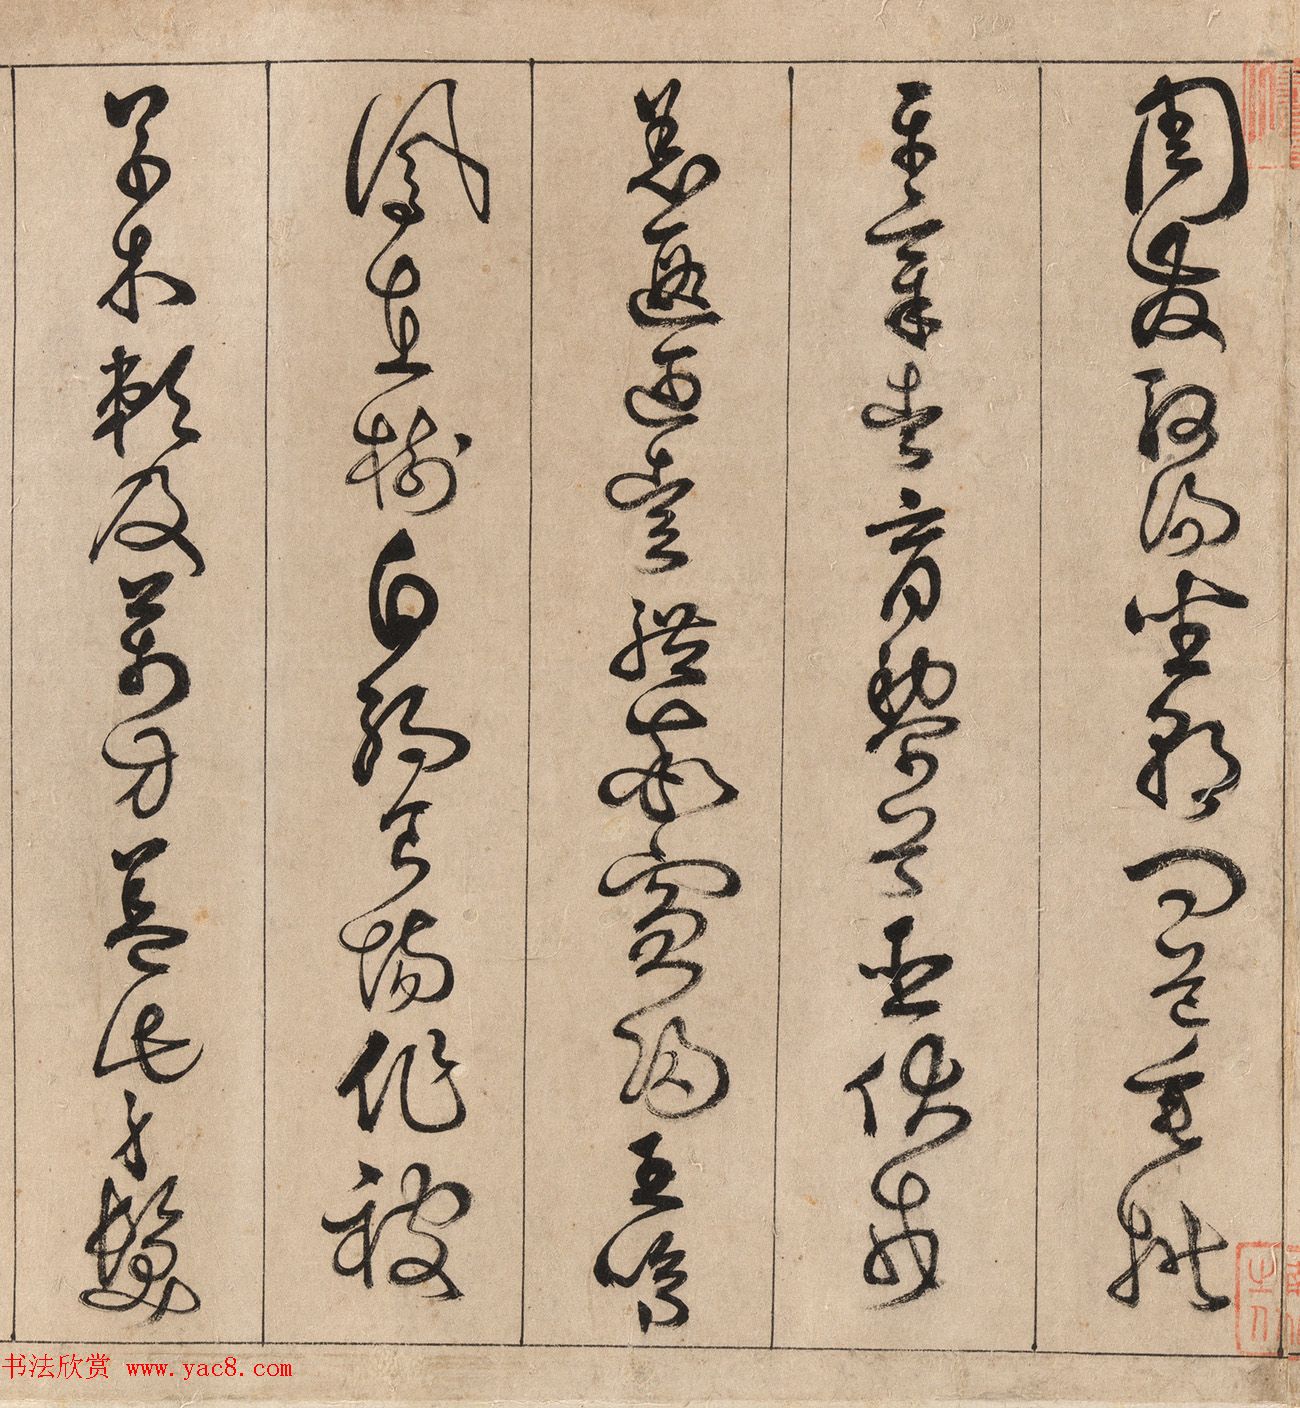 周發殷湯坐朝問道垂拱
平章愛育黎首臣伏戎
羌遐迩壹體率賓歸王鳴
鳳在樹白駒食場化被
草木賴及萬方蓋此身髮
书法欣赏 www.yac8.com